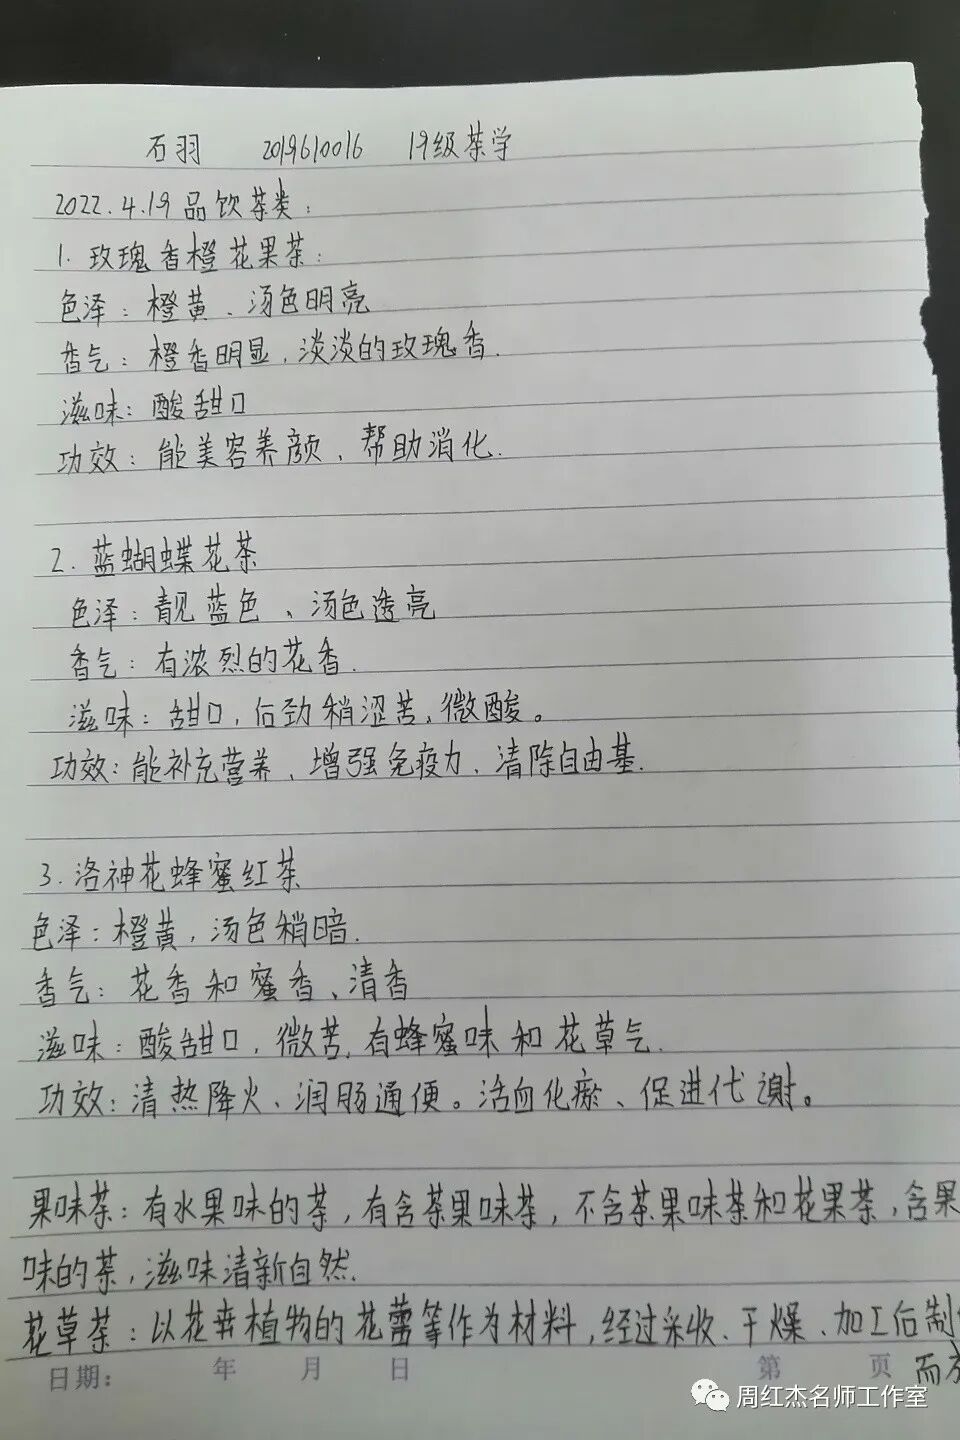 石羽 2019610016 19级茶学
2022.4.19品饮茶类:
1. 玫瑰香橙花果茶:
色泽:橙黄、汤色明亮
香气:橙香明显,淡淡的玫瑰香.
滋味:酸甜口
功效:能美容养颜、帮助消化.
2. 蓝蝴蝶花茶
色泽:靓蓝色、汤色透亮
香气:有浓烈的花香.
滋味:甜口,后劲稍涩苦,微酸。
功效:能补充营养、增强免疫力、清除自由基.
3. 洛神花蜂蜜红茶
色泽:橙黄,汤色稍暗.
香气:花香和蜜香、清香
滋味:酸甜口,微苦,有蜂蜜味和花草气.
功效:清热降火、润肠通便。活血化瘀、促进代谢。
果味茶:有水果味的茶,有含茶果味茶,不含茶果味茶和花果茶,含果
味的茶,滋味清新自然.
花草茶:以花卉植物的花蕾等作为材料,经过采收、干燥、加工后制
而
日期: 年 月 日 第 页
周红杰名师工作室